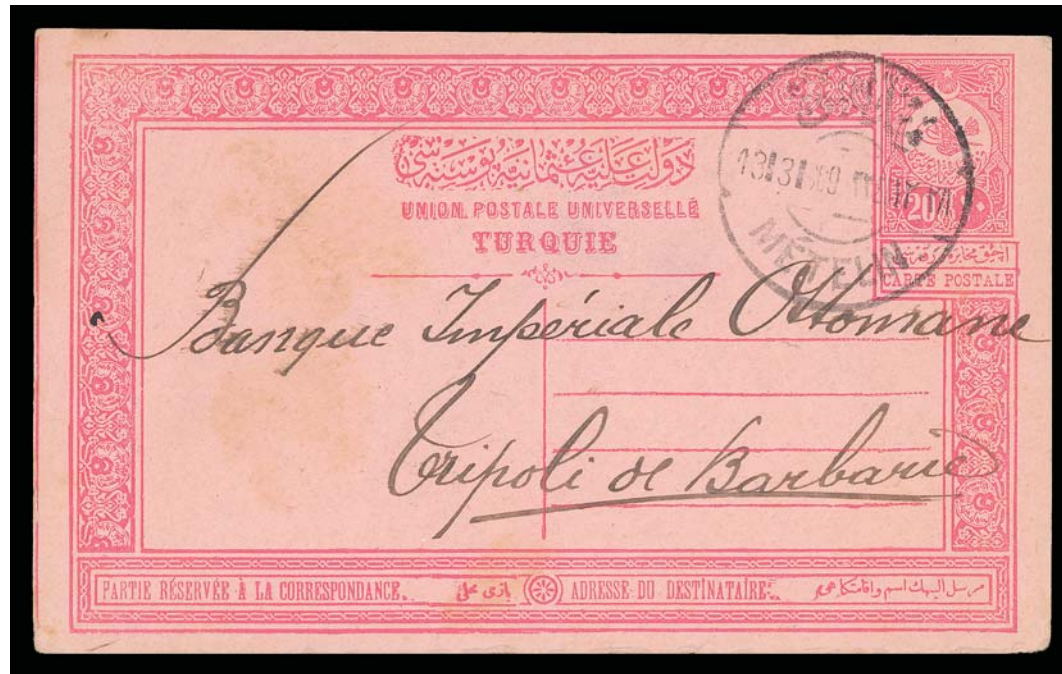 دولت عليۀ عثمانيه پوسته سى
UNION POSTALE UNIVERSELLE
TURQUIE
MÉTELIN
20 ٢٠
آچيق مخابره ورقه سى
CARTE POSTALE
Banque Impériale Ottomane
Tripoli de Barbarie
PARTIE RÉSERVÉE À LA CORRESPONDANCE. يازى محلى ADRESSE DU DESTINATAIRE. مرسل اليهك اسم واقامتكاهى